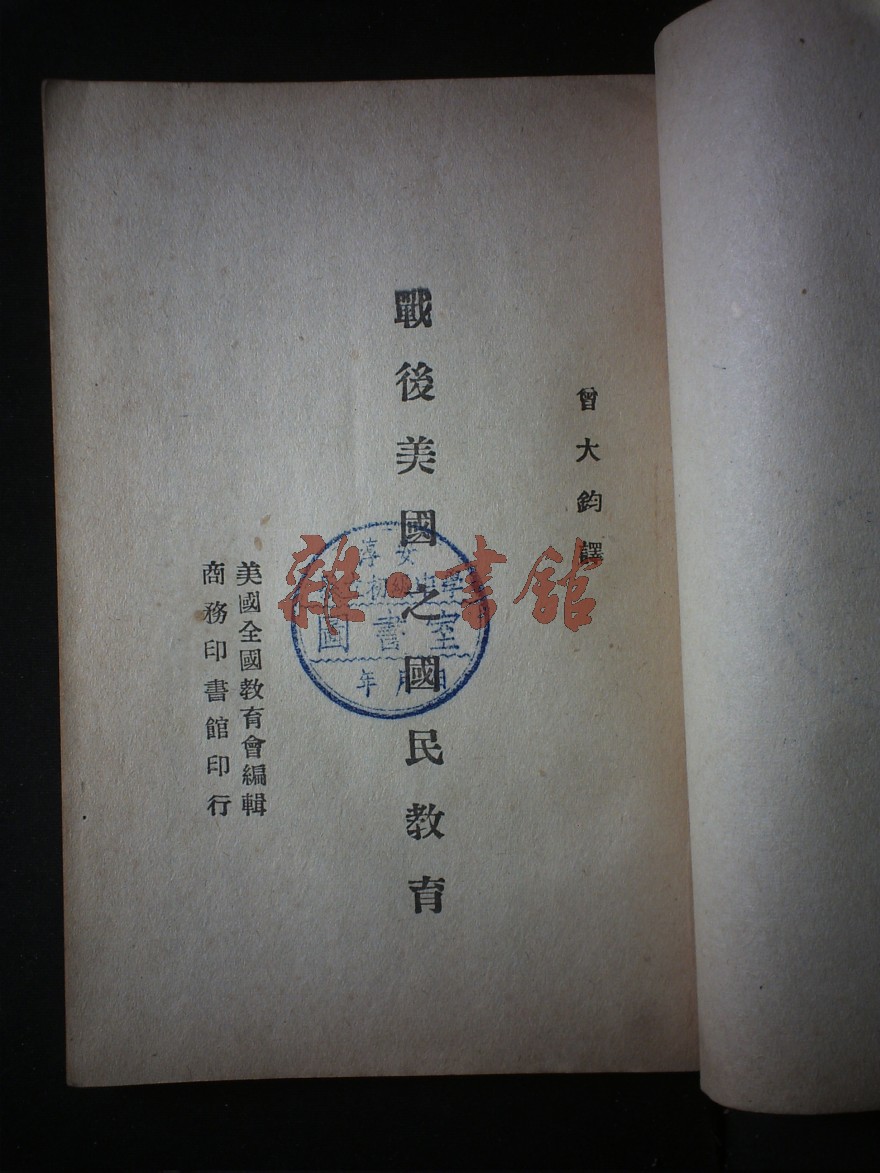 曾大鈞譯
戰後美國之國民教育
美國全國教育會編輯
商務印書館印行
雜·書館
初級中學
圖書室
年月日